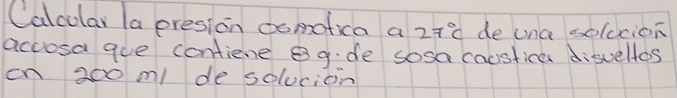 Calcular la presión osmotica a 27°c de una solución
acuosa que contiene 8 g. de sosa caustica disueltos
en 200 ml de solución